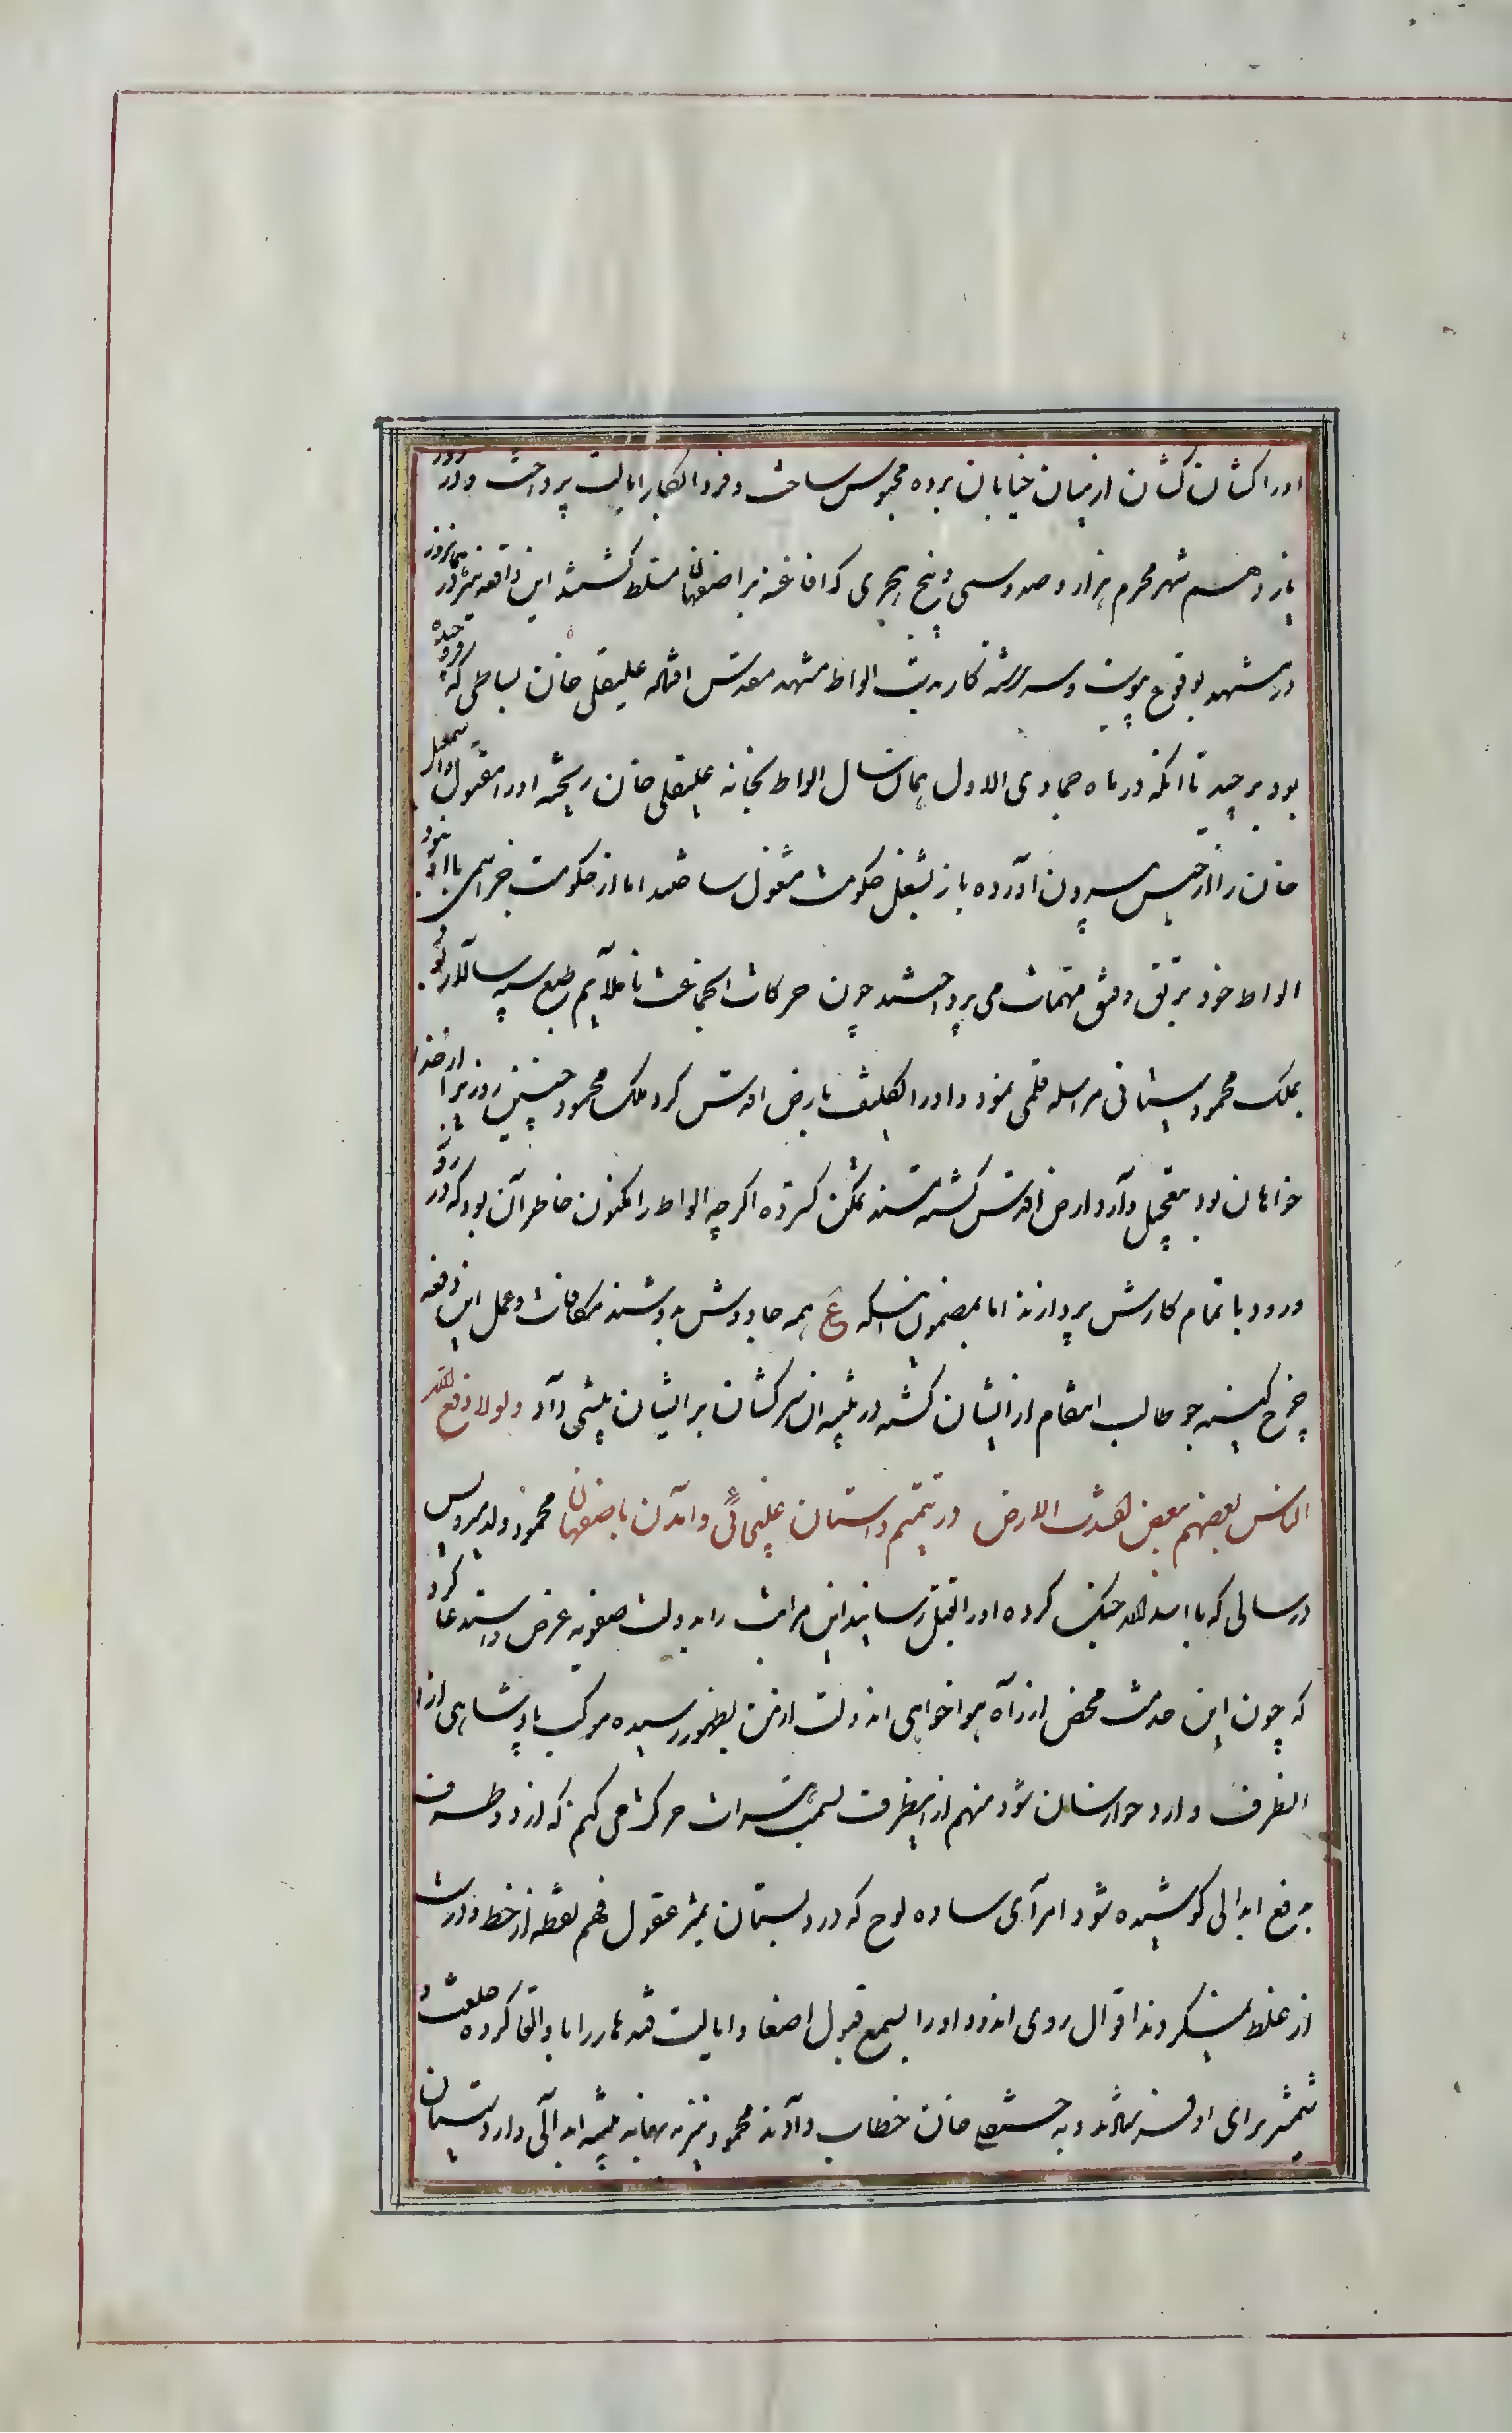 اورا کشان کشان از میان خیابان برده محبوس ساخت و خود بکار ایالت پرداخت و در روز
یازدهم شهر محرم هزار و صد و سی و پنج هجری که افاغنه بر اصفهان مسلط کشتند این واقعه نیز در همانروز
در مشهد بوقوع پیوست و سررشته کار بدست الواط مشهد مقدس افتاده علیقلی خان بساطی که فروچیده
بود برچید تا انکه در ماه جمادی الاول همان سال الواط بخانه علیقلی خان ریخته اورا مقتول و اسمعیل
خان را از حبس بیرون اورده باز بشغل حکومت مشغول ساختند اما از حکومت جز اسمی با او نبود
الواط خود برتق و فتق مهمات می پرداختند چون حرکات انجماعت ناملایم طبع سپه سالار بود
بملک محمود سیستانی مراسله قلمی نمود و اورا تکلیف بارض اقدس کرد ملک محمود چنین روز برا از خدا
خواهان بود بتعجیل وارد ارض اقدس کشته مسند تمکن کسترده اکرچه الواط را مکنون خاطر آن بود که در روز
ورود با تمام کارش پردازند اما بمضمون اینکه ع همه جا دوش بدوشند مکافات و عمل این دفعه
چرخ کینه جو طالب انتقام از ایشان کشته در تنبیه ان سرکشان بر ایشان پیشی داد و لولا دفع الله
الناس بعضهم ببعض لفسدت الارض در تتمیم داستان غلیجائی و آمدن باصفهان محمود ولد میرویس
در سالی که با اسد الله جنک کرده اورا بقتل رسانید این مراتب را بدولت صفویه عرض و استدعا کرد
که چون این خدمت محض از راه هواخواهی اندولت از من بظهور رسیده موکب پادشاهی از ا
نطرف وارد خراسان شود منهم از اینطرف بسمت هرات حرکت می کنم که از دو طرف
بدفع ابدالی کوشیده شود امرآی ساده لوح که در دبستان تمیز عقول فهم نقطه از خط و درست
از غلط نمیکردند اقوال روی اندود اورا بسمع قبول اصغا و ایالت قندهار را باو القا کرده خلعت و
شمشیر برای او فرستادند و به حسینقلی خان خطاب دادند محمود نیز به بهانه تنبیه ابدآلی وارد سیستان